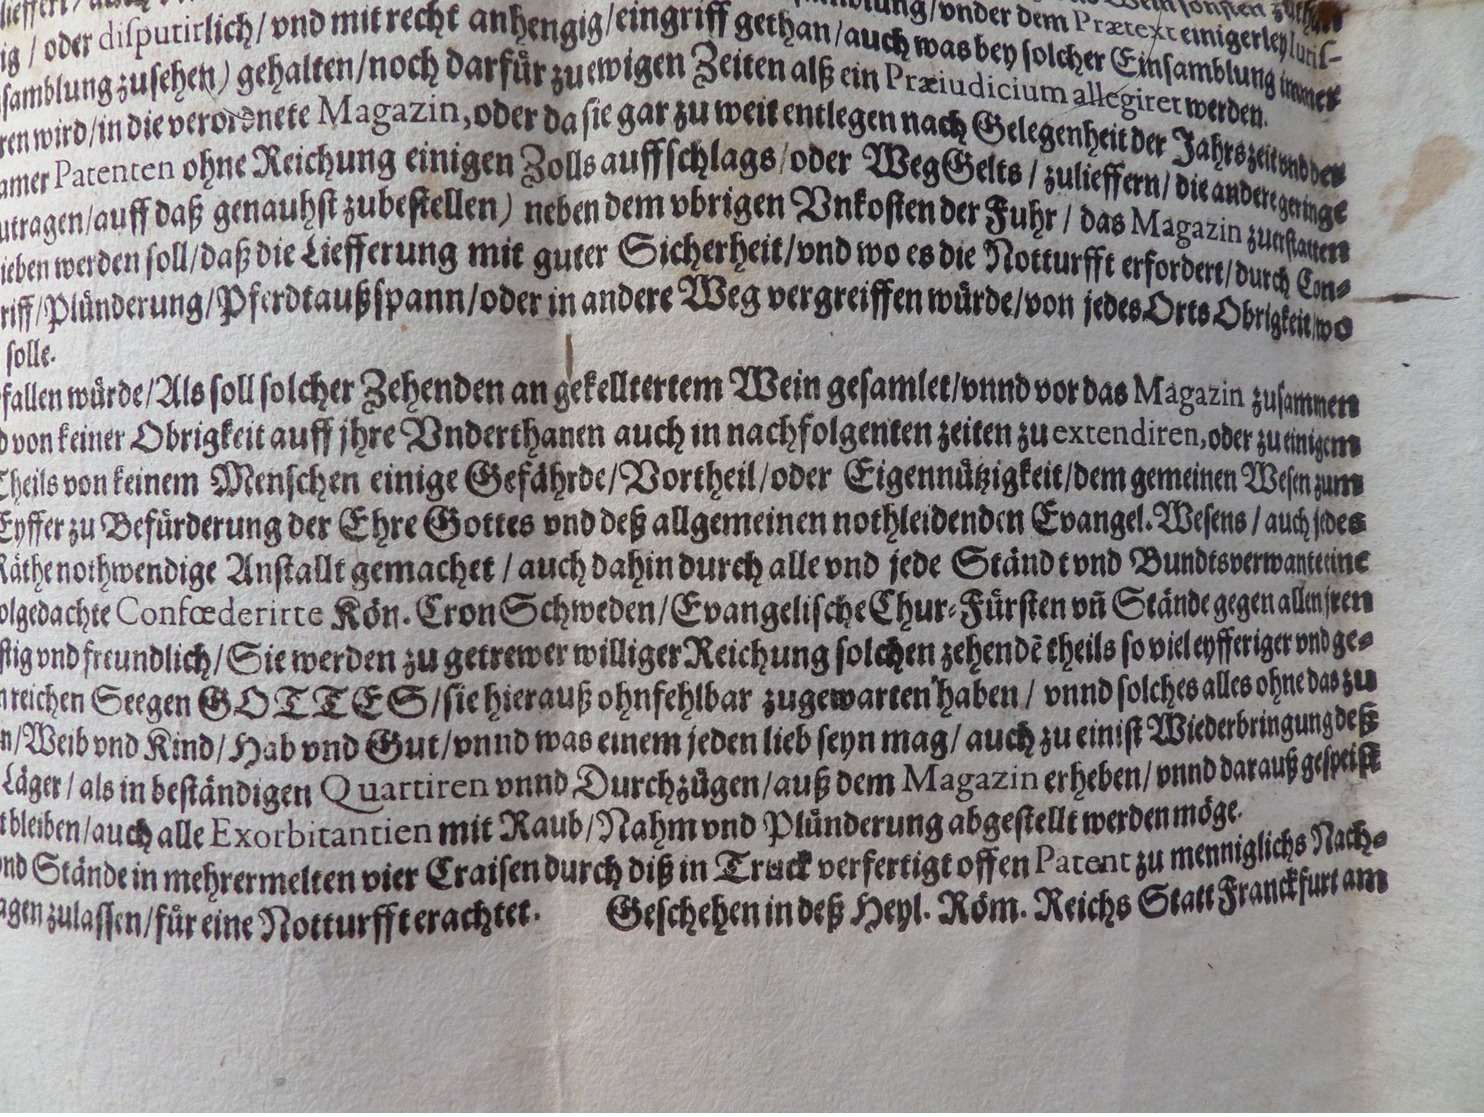 ig / oder disputirlich / vnd mit recht anhengig / eingriff gethan / auch was bey solcher Einsamblung immer
samblung zusehen) gehalten / noch darfür zu ewigen Zeiten alß ein Præiudicium allegiret werden.
ren wird / in die verordnete Magazin, oder da sie gar zu weit entlegen nach Gelegenheit der Jahrszeit vnd der
amer Patenten ohne Reichung einigen Zolls auffschlags / oder WegGelts / zulieffern / die andere geringe
utragen / auff daß genauhst zubestellen) neben dem vbrigen Vnkosten der Fuhr / das Magazin zuerstatten
ieben werden soll / daß die Liefferung mit guter Sicherheit / vnd wo es die Notturfft erfordert / durch Con-
riff / Plünderung / Pferdtaußspann / oder in andere Weg vergreiffen würde / von jedes Orts Obrigkeit / wo
solle.
fallen würde / Als soll solcher Zehenden an gekelltertem Wein gesamlet / vnnd vor das Magazin zusammen
d von keiner Obrigkeit auff jhre Vnderthanen auch in nachfolgenten zeiten zu extendiren, oder zu einigem
Theils von keinem Menschen einige Gefährde / Vortheil / oder Eigennützigkeit / dem gemeinen Wesen zum
Eyffer zu Befürderung der Ehre Gottes vnd deß allgemeinen nothleidenden Evangel. Wesens / auch jedes
Räthe nothwendige Anstallt gemachet / auch dahin durch alle vnd jede Ständt vnd Bundtsverwante eine
olgedachte Confœderirte Kön. Cron Schweden / Evangelische Chur-Fürsten vñ Stände gegen allen jren
stig vnd freundlich / Sie werden zu getrewer williger Reichung solchen zehendẽ theils so viel eyfferiger vnd ge-
n reichen Seegen GOTTES / sie hierauß ohnfehlbar zugewarten haben / vnnd solches alles ohne das zu
n / Weib vnd Kind / Hab vnd Gut / vnnd was einem jeden lieb seyn mag / auch zu einist Wiederbringung deß
Läger / als in beständigen Quartiren vnnd Durchzügen / auß dem Magazin erheben / vnnd darauß gespeist
tbleiben / auch alle Exorbitantien mit Raub / Nahm vnd Plünderung abgestellt werden möge.
nd Stände in mehrermelten vier Craisen durch diß in Truck verfertigt offen Patent zu menniglichs Nach-
agen zulassen / für eine Notturfft erachtet. Geschehen in deß Heyl. Röm. Reichs Statt Franckfurt am